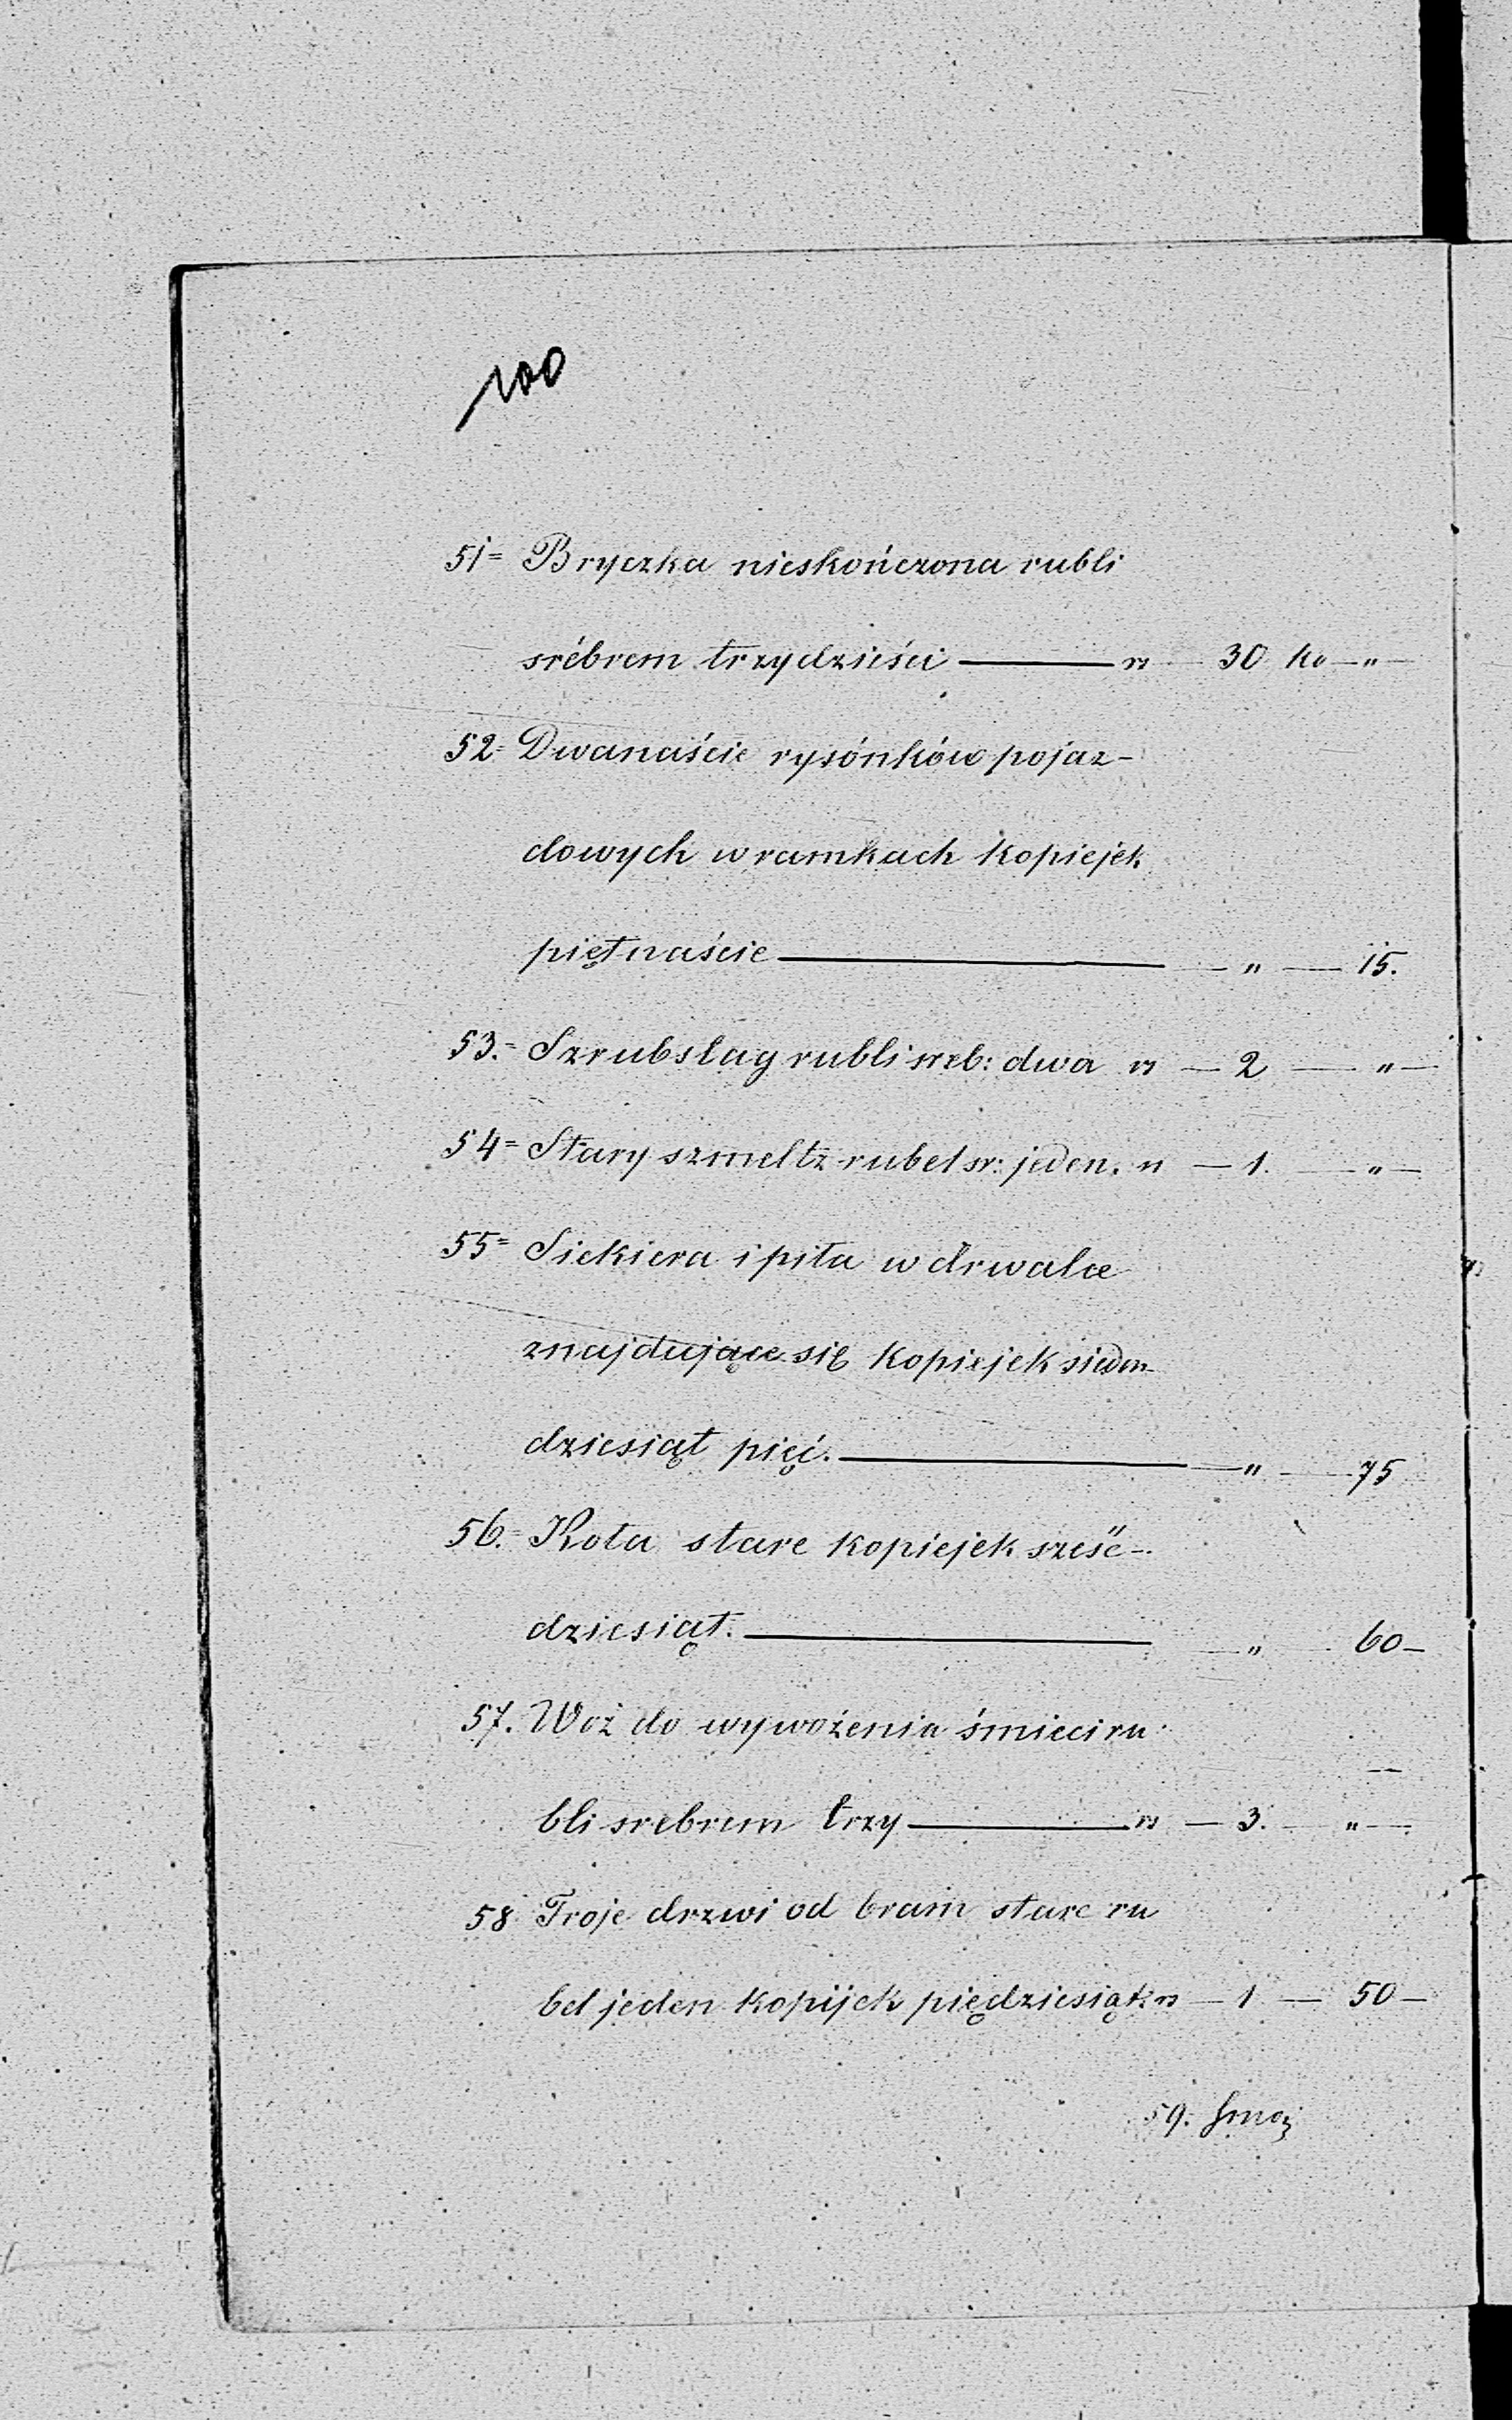 100
51= Bryczka nieskończona rubli
srébrem trzydzieści — rs — 30 ko — " —
52= Dwanaście rysónków pojaz-
dowych w ramkach kopiejek
piętnaście — " — 15.
53.= Szrubsłag rubli sreb: dwa rs — 2 — " —
54= Stary szmeltz rubel sr: jeden. rs — 1. — " —
55= Siekiera i piła w drwalce
znajdujące się kopiejek siedm
dziesiąt pięć. — " — 75
56.= Koła stare kopiejek sześć-
dziesiąt. — " — 60 —
57. Wóz do wywożenia śmieci ru
bli srebrem trzy — rs — 3. — " —
58 Troje drzwi od bram stare ru
bel jeden kopijek piędziesiąt rs — 1 — 50 —
59.